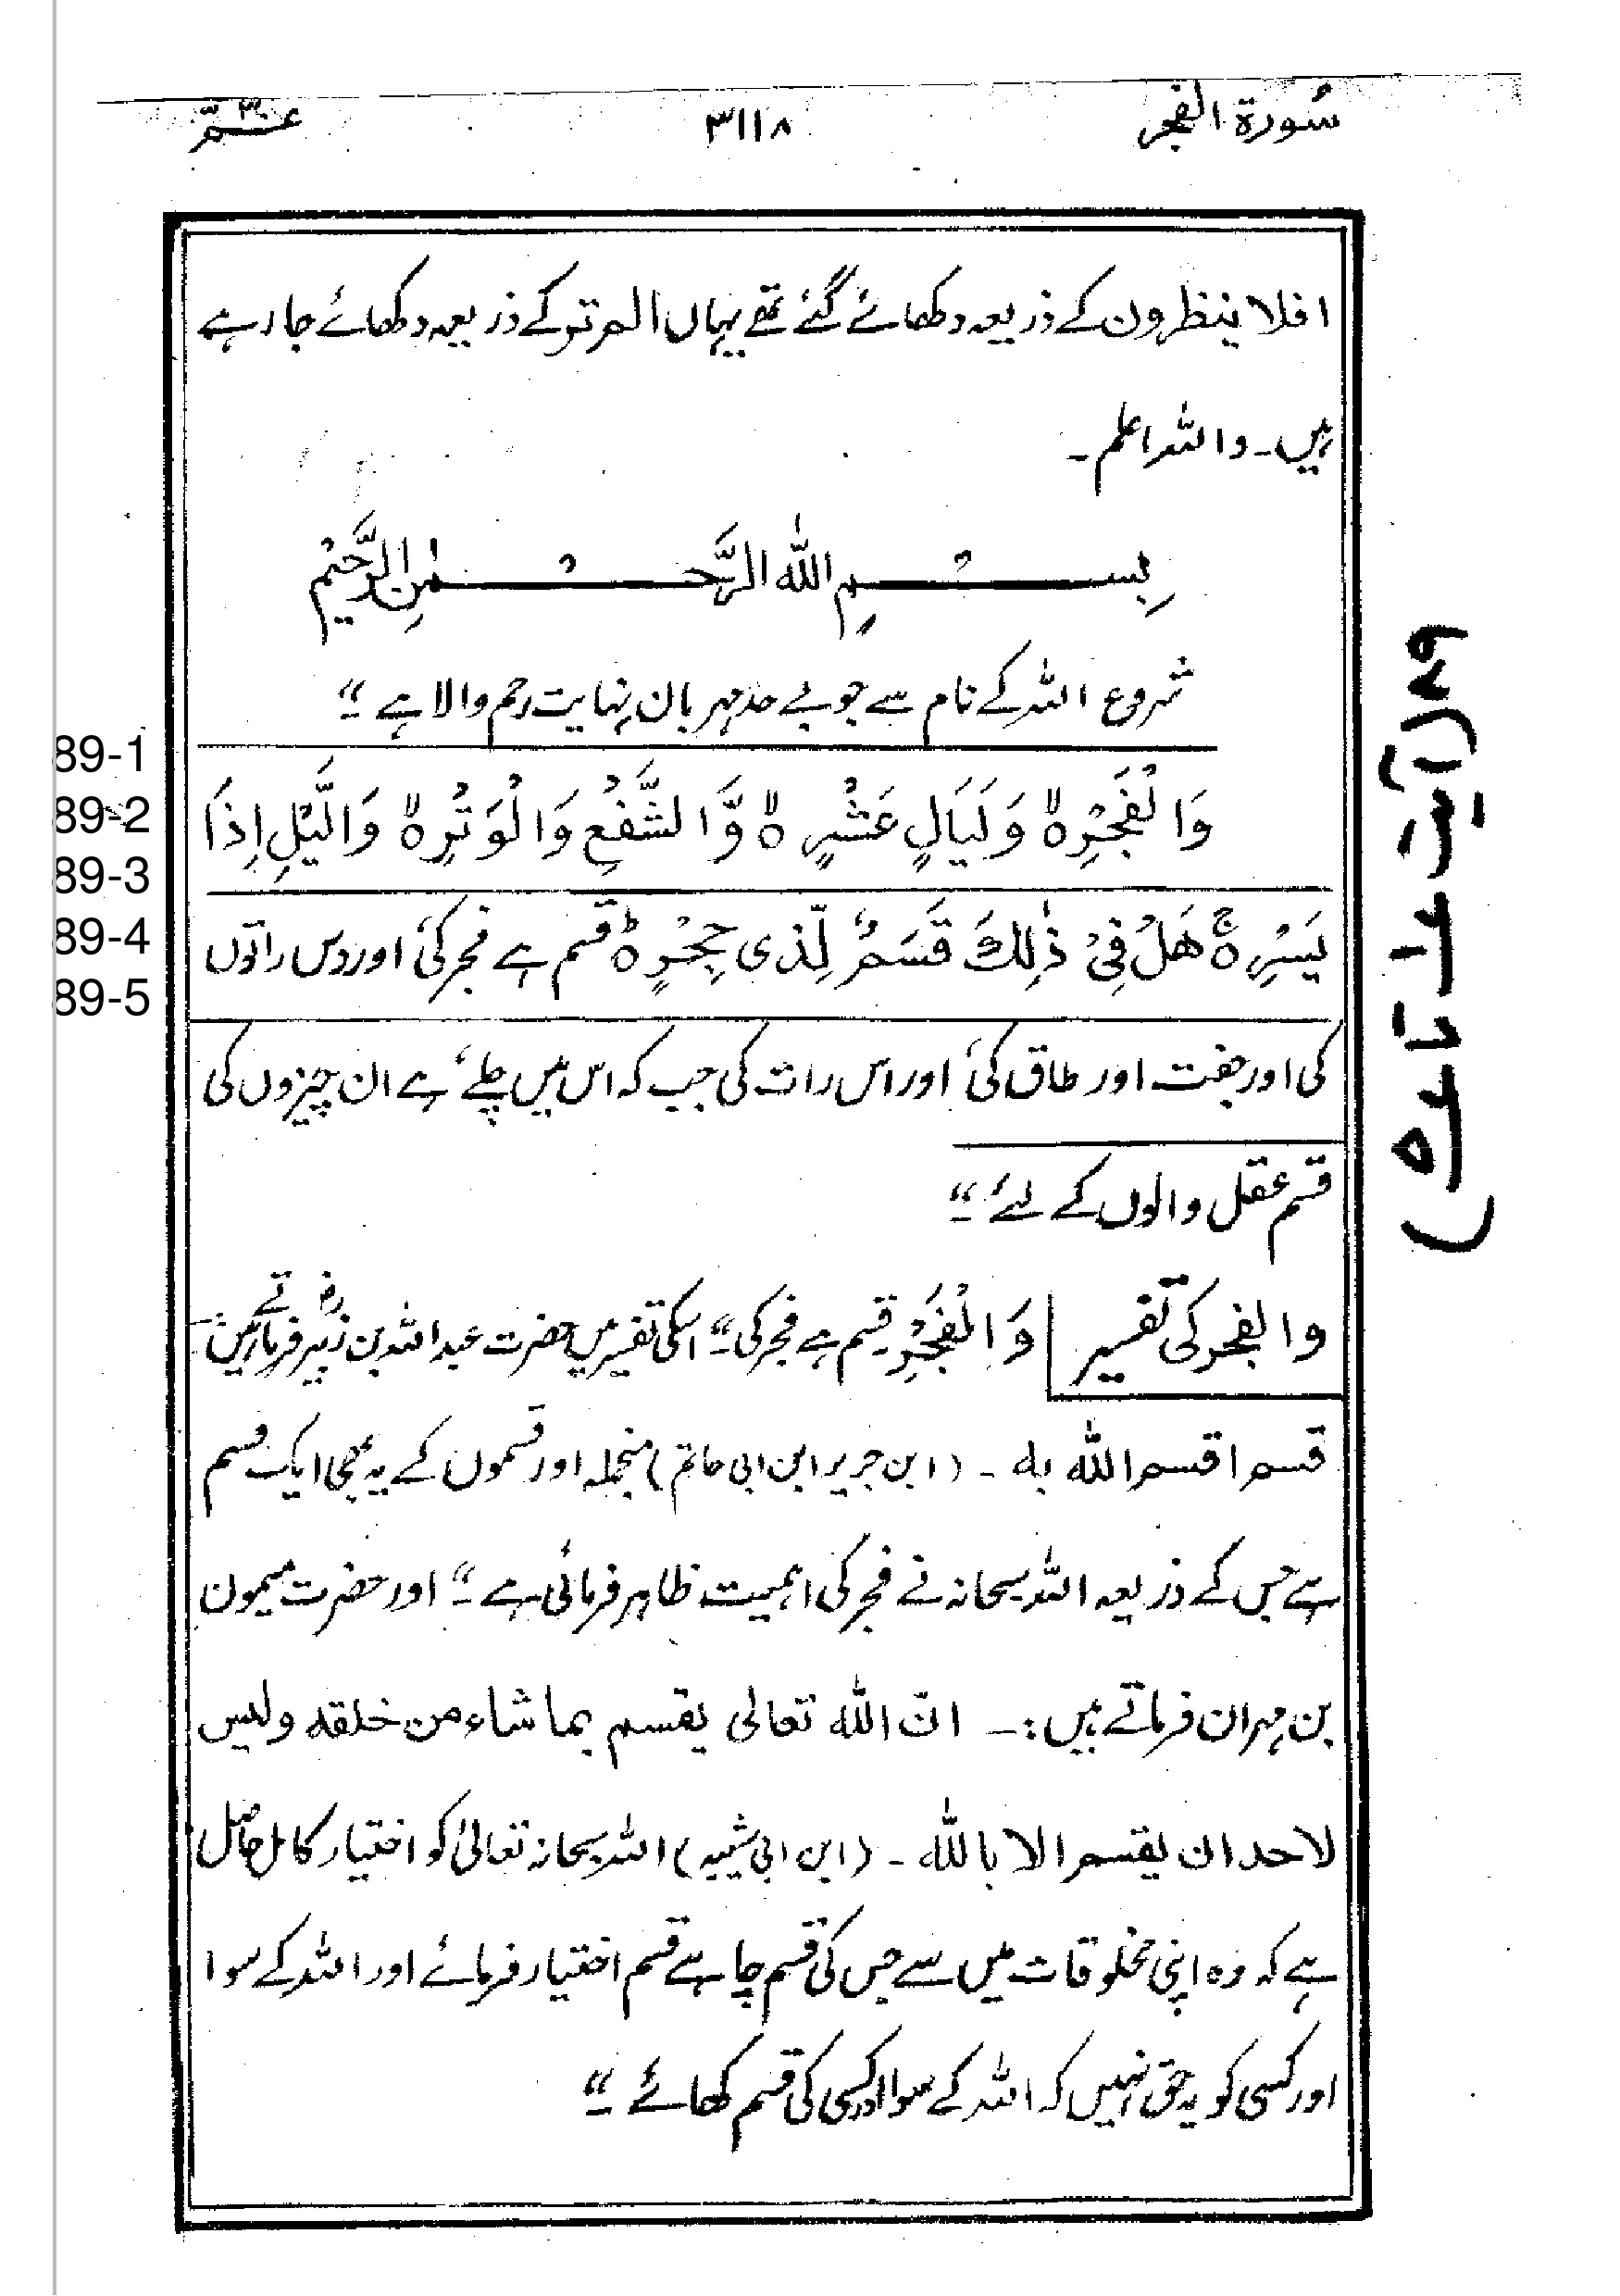 سُورة الفجر ۳۱۱۸ عمّ ۳۰
افلا ینظرون کے ذریعہ دکھائے گئے تھے یہاں الم تر کے ذریعہ دکھائے جا رہے
ہیں۔ واللہ اعلم۔
بِسْمِ اللّٰهِ الرَّحْمٰنِ الرَّحِیْمِ
شروع اللہ کے نام سے جو بے حد مہربان نہایت رحم والا ہے ۔“
89-1
89-2
89-3
89-4
89-5
وَالْفَجْرِ ۙ وَلَیَالٍ عَشْرٍ ۙ وَّالشَّفْعِ وَالْوَتْرِ ۙ وَالَّیْلِ اِذَا
یَسْرِ ۚ هَلْ فِیْ ذٰلِكَ قَسَمٌ لِّذِی حِجْرٍ ؕ قسم ہے فجر کی، اور دس راتوں
کی اور جفت اور طاق کی، اور اس رات کی جب کہ اس میں چلے، ہے ان چیزوں کی
قسم عقل والوں کے لئے ۔“
والفجر کی تفسیر وَالْفَجْرِ قسم ہے فجر کی ۔“ اسکی تفسیر میں حضرت عبداللہ بن زبیرؓ فرماتے ہیں
قسم اقسم اللّٰه به ۔ (ابن جریر ابن ابی حاتم) منجملہ اور قسموں کے یہ بھی ایک قسم
ہے جس کے ذریعہ اللہ سبحانہ نے فجر کی اہمیت ظاہر فرمائی ہے ۔“ اور حضرت میمون
بن مہران فرماتے ہیں:۔ انّ اللّٰه تعالی یقسم بما شاء من خلقه ولیس
لاحد ان یقسم الا باللّٰه ۔ (ابن ابی شیبہ) اللہ سبحانہ تعالیٰ کو اختیار کامل حاصل
ہے کہ وہ اپنی مخلوقات میں سے جس کی قسم چاہے قسم اختیار فرمائے اور اللہ کے سوا
اور کسی کو یہ حق نہیں کہ اللہ کے سوا اور کسی کی قسم کھائے ۔“
۸۹ (آیت ۱ تا ۵)